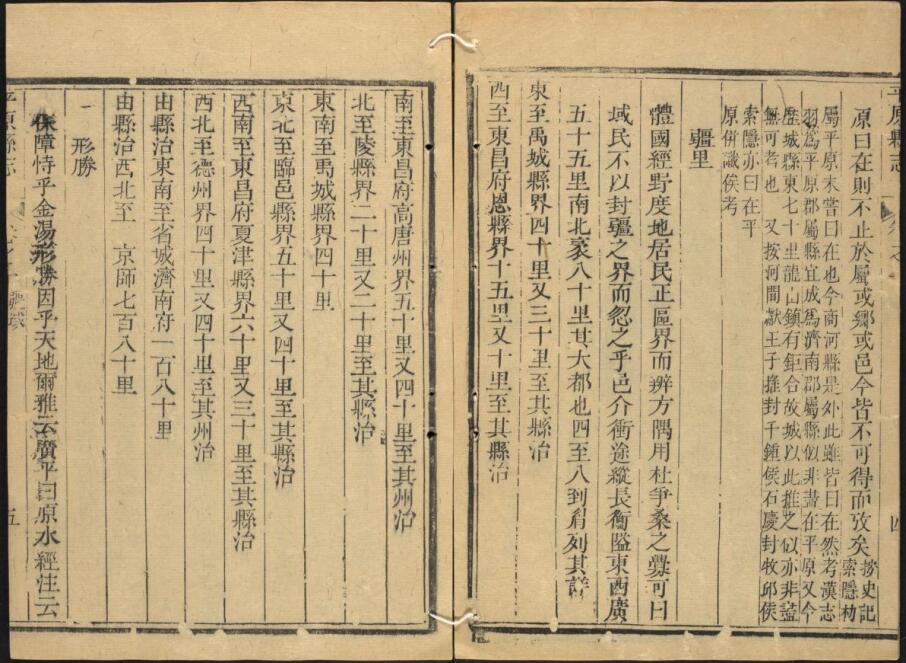 平原縣志
四
原曰在則不止於屬或鄉或邑今皆不可得而攷矣
按史記
索隱劫
屬平原未嘗曰在也今商河縣是外此雖皆曰在然考漢志
羽爲平原郡屬縣宜成爲濟南郡屬縣似非盡在平原又今
歷城縣東七十里龍山鎮有鉅合故城以此推之似亦非盡
無可考也 又按河間獻王子推封千鍾侯石慶封牧邱侯
索隱亦曰在平
原併識俟考
疆里
體國經野度地居民正區界而辨方隅用杜爭桑之釁可曰
域民不以封疆之界而忽之乎邑介衝途縱長衡隘東西廣
五十五里南北袤八十里其大都也四至八到肩列其詳
東至禹城縣界四十里又三十里至其縣治
西至東昌府恩縣界十五里又十里至其縣治
南至東昌府高唐州界五十里又四十里至其州治
北至陵縣界二十里又二十里至其縣治
東南至禹城縣界四十里
東北至臨邑縣界五十里又四十里至其縣治
西南至東昌府夏津縣界六十里又三十里至其縣治
西北至德州界四十里又四十里至其州治
由縣治東南至省城濟南府一百八十里
由縣治西北至 京師七百八十里
形勝
保障恃乎金湯形勝因乎天地爾雅云廣平曰原水經注云
平原縣志
五